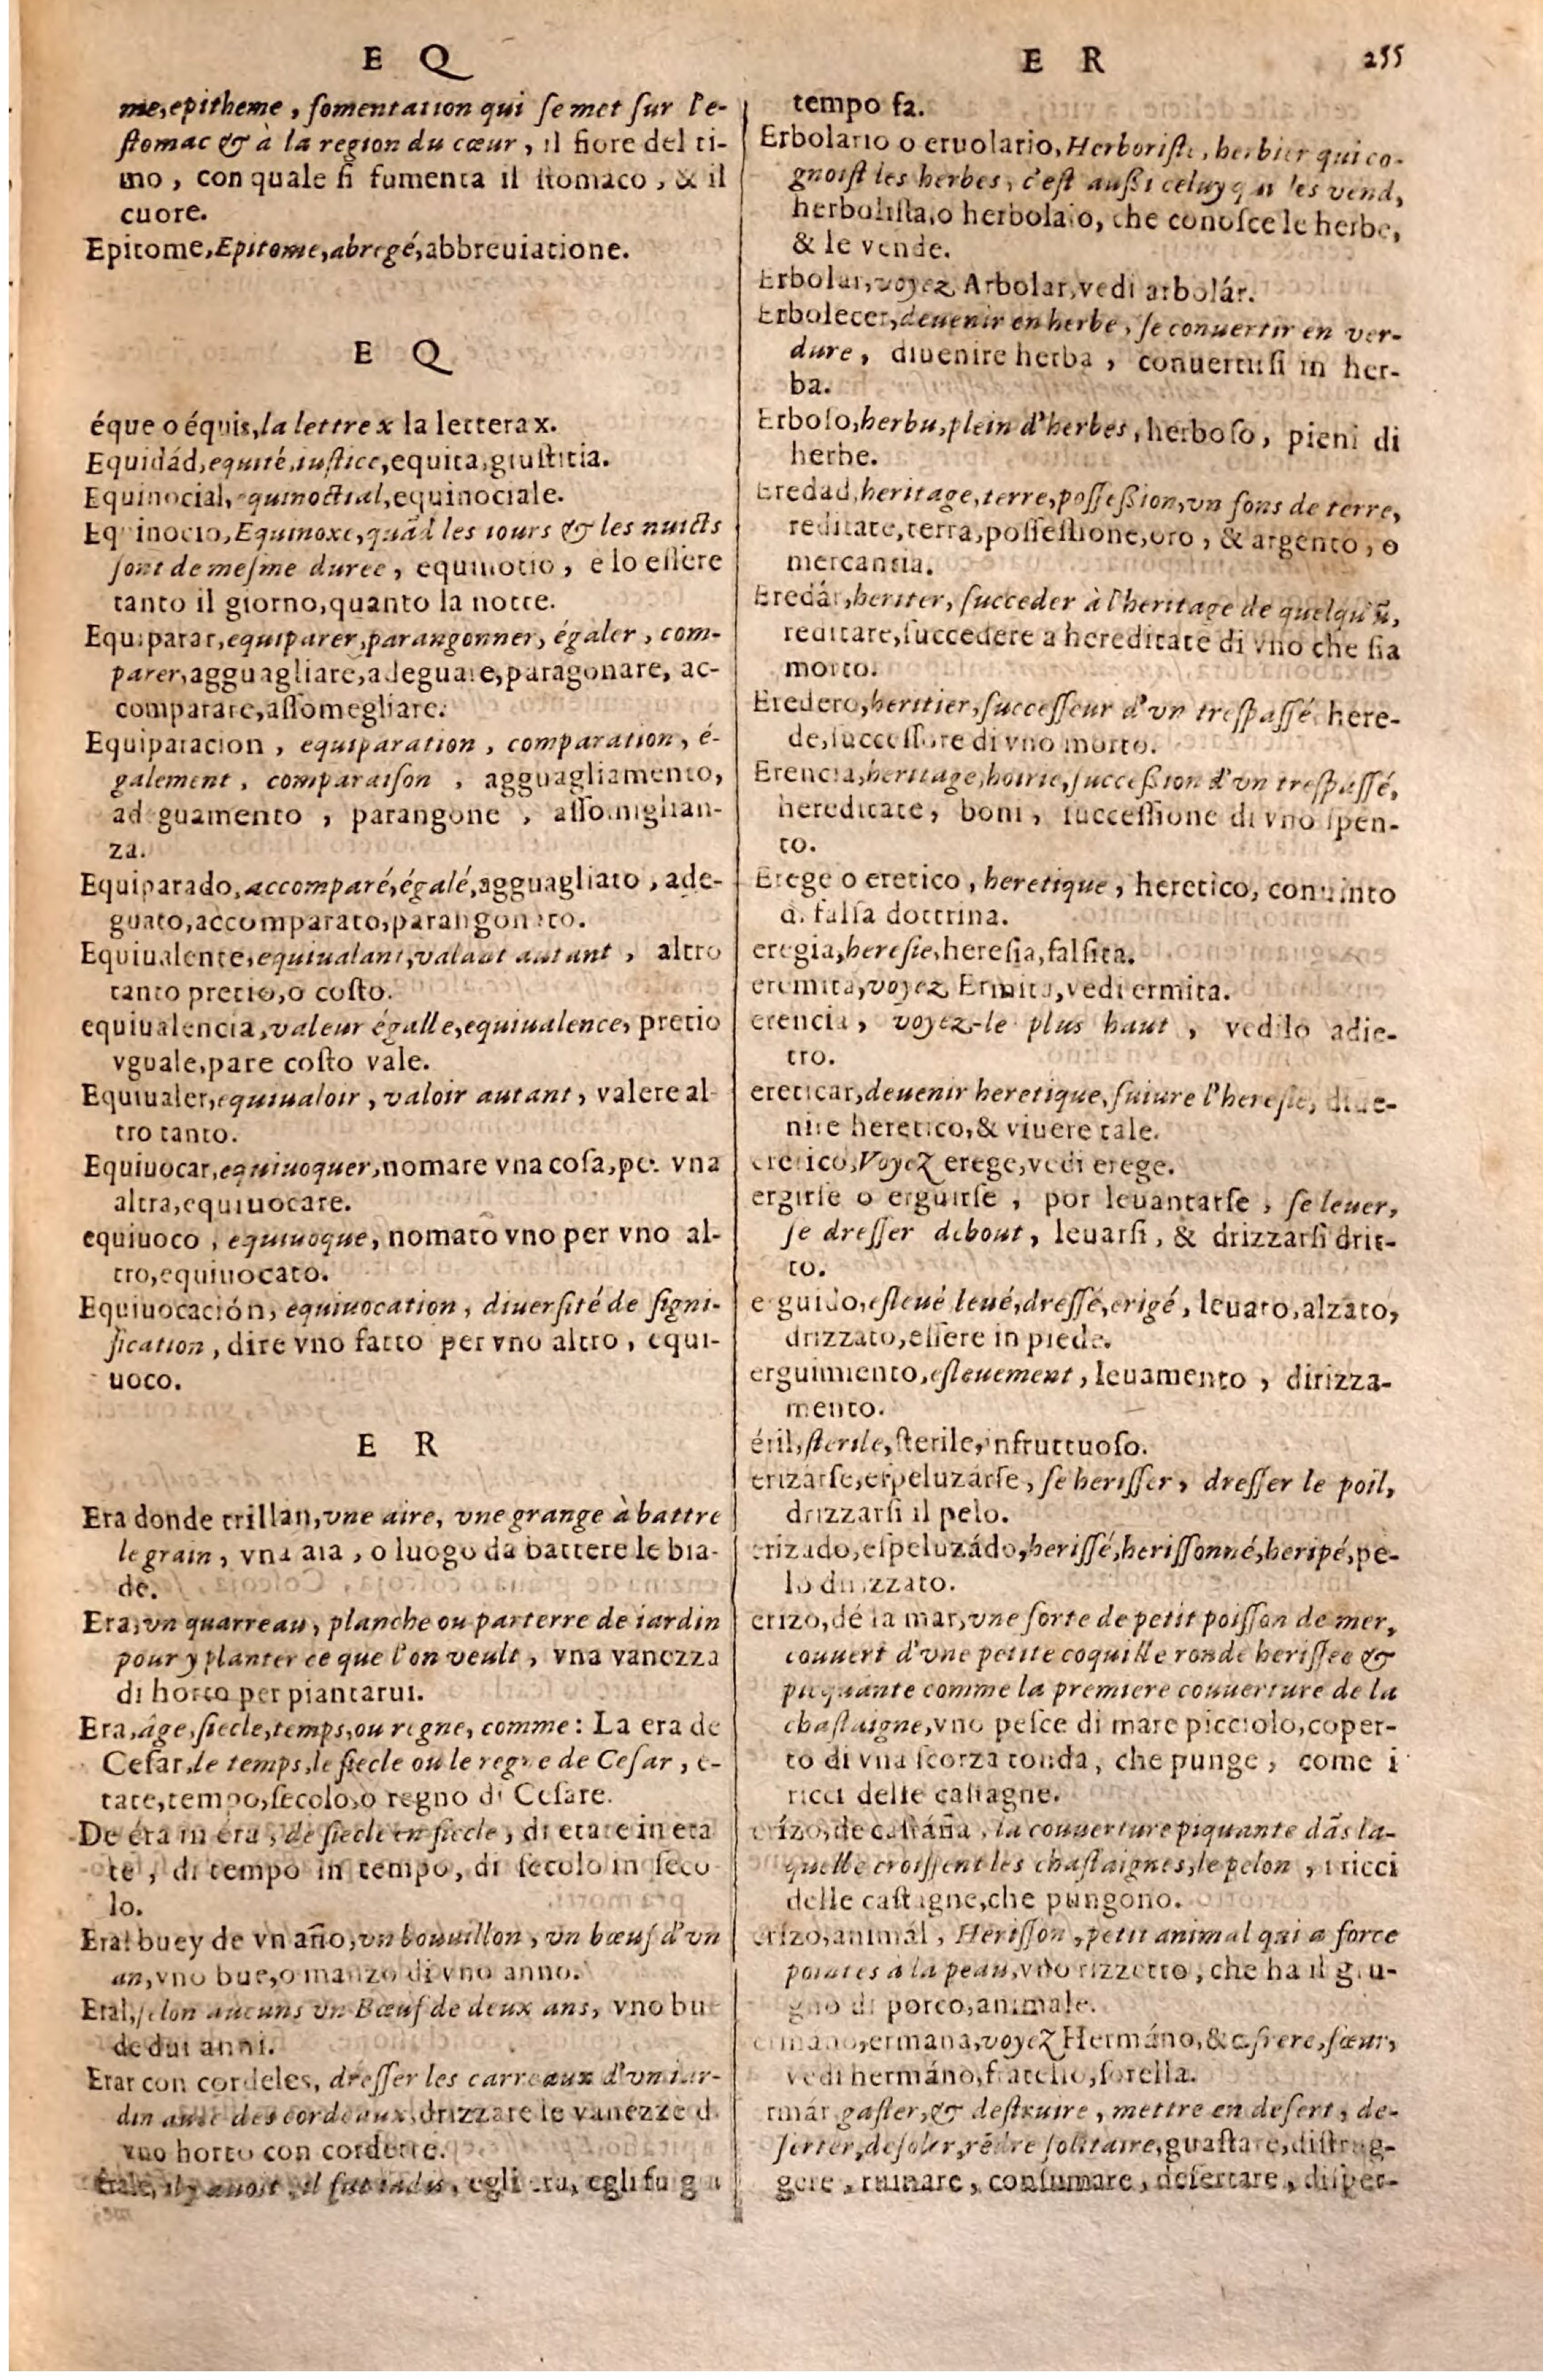 E Q
me, epitheme, fomentation qui se met sur l'e-
ſtomac & à la region du cœur, il fiore del ti-
mo, con quale ſi fumenta il ſtomaco, & il
cuore.
Epitome, Epitome, abregé, abbreuiatione.
E Q
éque o équis, la lettre x la lettera x.
Equidád, equité, iuſtice, equita, giuſtitia.
Equinocial, equinoctial, equinociale.
Equinocio, Equinoxe, quãd les iours & les nuicts
ſont de meſme duree, equinotio, e lo eſſere
tanto il giorno, quanto la notte.
Equiparar, equiparer, parangonner, égaler, com-
parer, agguagliare, adeguare, paragonare, ac-
comparare, aſſomegliare.
Equiparacion, equiparation, comparation, é-
galement, comparaiſon, agguagliamento,
adeguamento, parangone, aſſomiglian-
za.
Equiparado, accomparé, égalé, agguagliato, ade-
guato, accomparato, parangonato.
Equiualente, equiualant, valant autant, altro
tanto pretio, o coſto.
equiualencia, valeur égalle, equiualence, pretio
vguale, pare coſto vale.
Equiualer, equiualoir, valoir autant, valere al-
tro tanto.
Equiuocar, equiuoquer, nomare vna coſa, per vna
altra, equiuocare.
equiuoco, equiuoque, nomato vno per vno al-
tro, equiuocato.
Equiuocación, equiuocation, diuerſité de ſigni-
fication, dire vno fatto per vno altro, equi-
uoco.
E R
Era donde trillan, vne aire, vne grange à battre
le grain, vna aia, o luogo da battere le bia-
de.
Era, vn quarreau, planche ou parterre de iardin
pour y planter ce que l'on veult, vna vanezza
di horto per piantarui.
Era, âge, ſiecle, temps, ou regne, comme: La era de
Ceſar, le temps, le ſiecle ou le regne de Ceſar, e-
tate, tempo, ſecolo, o regno di Ceſare.
De éra in éra, de ſiecle en ſiecle, di etate in eta
te, di tempo in tempo, di ſecolo in ſeco
lo.
Eral buey de vn año, vn bouuillon, vn bœuf d'vn
an, vno bue, o manzo di vno anno.
Eral, ſelon aucuns vn Bœuf de deux ans, vno bue
de dui anni.
Erar con cordeles, dreſſer les carreaux d'vn iar-
din auec des cordeaux, drizzare le vanezze d.
vno horto con cordette.
Erale, il y auoit, il fut iadis, egli era, egli fu gia
E R 255
tempo fa.
Erbolario o eruolario, Herboriſte, herbier qui co-
gnoiſt les herbes, c'eſt auſſi celuy qui les vend,
herboliſta, o herbolaio, che conoſce le herbe,
& le vende.
Erbolar, voyez Arbolar, vedi arbolár.
Erbolecer, deuenir en herbe, ſe conuertir en ver-
dure, diuenire herba, conuertirſi in her-
ba.
Erboſo, herbu, plein d'herbes, herboſo, pieni di
herbe.
Eredad, heritage, terre, poſſeſſion, vn fons de terre,
reditate, terra, poſſeſſione, oro, & argento, o
mercantia.
Eredár, heriter, ſucceder à l'heritage de quelqu'ũ,
reditare, ſuccedere a hereditate di vno che ſia
morto.
Eredero, heritier, ſucceſſeur d'vn treſpaſſé, here-
de, ſucceſſore di vno morto.
Erencia, heritage, hoirie, ſucceſſion d'vn treſpaſſé,
hereditate, boni, ſucceſſione di vno ſpen-
to.
Erege o eretico, heretique, heretico, conuinto
di falſa dottrina.
eregia, hereſie, hereſia, falſita.
eremita, voyez Ermita, vedi ermita.
erencia, voyez-le plus haut, vedilo adie-
tro.
ereticar, deuenir heretique, ſuiure l'hereſie, diue-
nire heretico, & viuere tale.
eretico, Voyez erege, vedi erege.
ergirſe o erguirſe, por leuantarſe, ſe leuer,
ſe dreſſer debout, leuarſi, & drizzarſi drit-
to.
erguido, eſleué leué, dreſſé, erigé, leuato, alzato,
drizzato, eſſere in piede.
erguimiento, eſleuement, leuamento, dirizza-
mento.
éril, ſterile, ſterile, infruttuoſo.
erizarſe, eſpeluzarſe, ſe heriſſer, dreſſer le poil,
drizzarſi il pelo.
erizado, eſpeluzádo, heriſſé, heriſſonné, heripé, pe-
lo drizzato.
erizo, dé la mar, vne ſorte de petit poiſſon de mer,
couuert d'vne petite coquille ronde heriſſee &
picquante comme la premiere couuerture de la
chaſtaigne, vno peſce di mare picciolo, coper-
to di vna ſcorza tonda, che punge, come i
ricci delle caſtagne.
erízo, de caſtáña, la couuerture piquante dãs la-
quelle croiſſent les chaſtaignes, le pelon, i ricci
delle caſtagne, che pungono.
erízo, animál, Heriſſon, petit animal qui a force
pointes a la peau, vno rizzetto, che ha il gru-
gno di porco, animale.
ermano, ermana, voyez Hermáno, &c. frere, ſœur,
vedi hermáno, fratello, ſorella.
ermár gaſter, & deſtruire, mettre en deſert, de-
ſerter, deſoler, rẽdre ſolitaire, guaſtare, diſtrug-
gere, ruinare, conſumare, deſertare, diſper-